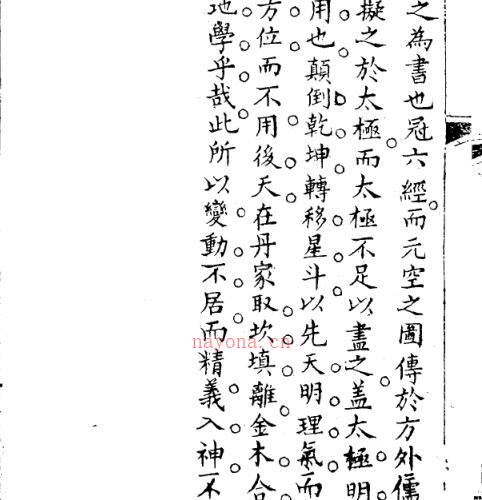 之為書也冠六經而元空之圖傳於方外儒
擬之於太極而太極不足以盡之盖太極明
用也顛倒乾坤轉移星斗以先天明理氣而
方位而不用後天在丹家取坎填離金木合
地學乎哉此所以變動不居而精義入神不
nayona.cn